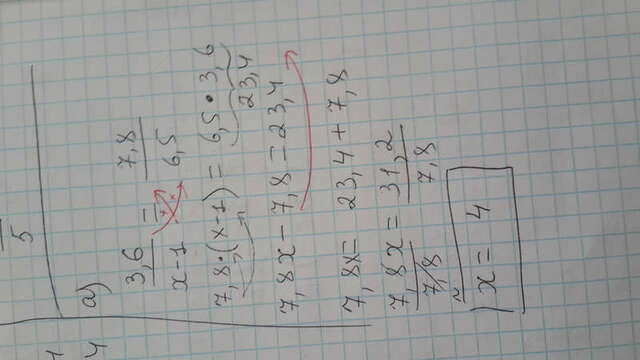 5
а)
3,6 / x-1 = 7,8 / 6,5
7,8·(x-1) = 6,5·3,6
23,4
7,8x-7,8=23,4
7,8x= 23,4+7,8
7,8x / 7,8 = 31,2 / 7,8
x= 4